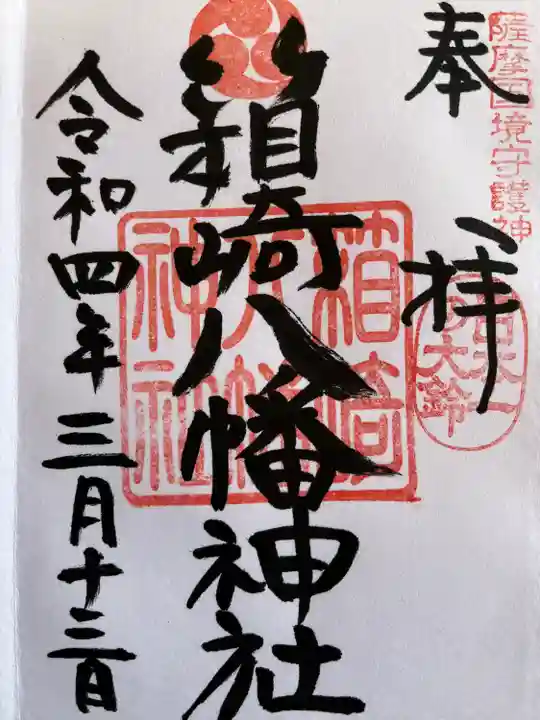 薩摩国境守護神
奉拝
日本一
大鈴
箱崎八幡神社
箱崎
八幡
神社
令和四年三月十三日